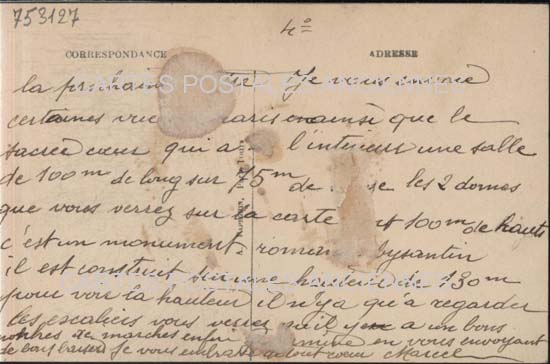 753127
4°
CORRESPONDANCE
ADRESSE
CARTES POSTALES ANCIENNES
la prochain Je vous envoie
certaines vues Paris ainsi que le
sacré cœur qui a à l'intérieur une salle
de 100m de long sur 75m de les 2 domes
que vous verrez sur la carte ont 100m de hauts
c'est un monument romano bysantin
il est construit sur une hauteur de 130m
pour voir la hauteur il n'y a qu'a regarder
les escaliers vous verrez qu'il y a un bons
nombres de marches enfin termine en vous envoyant
de bons baisers Je vous embrasse de tout cœur Marcel